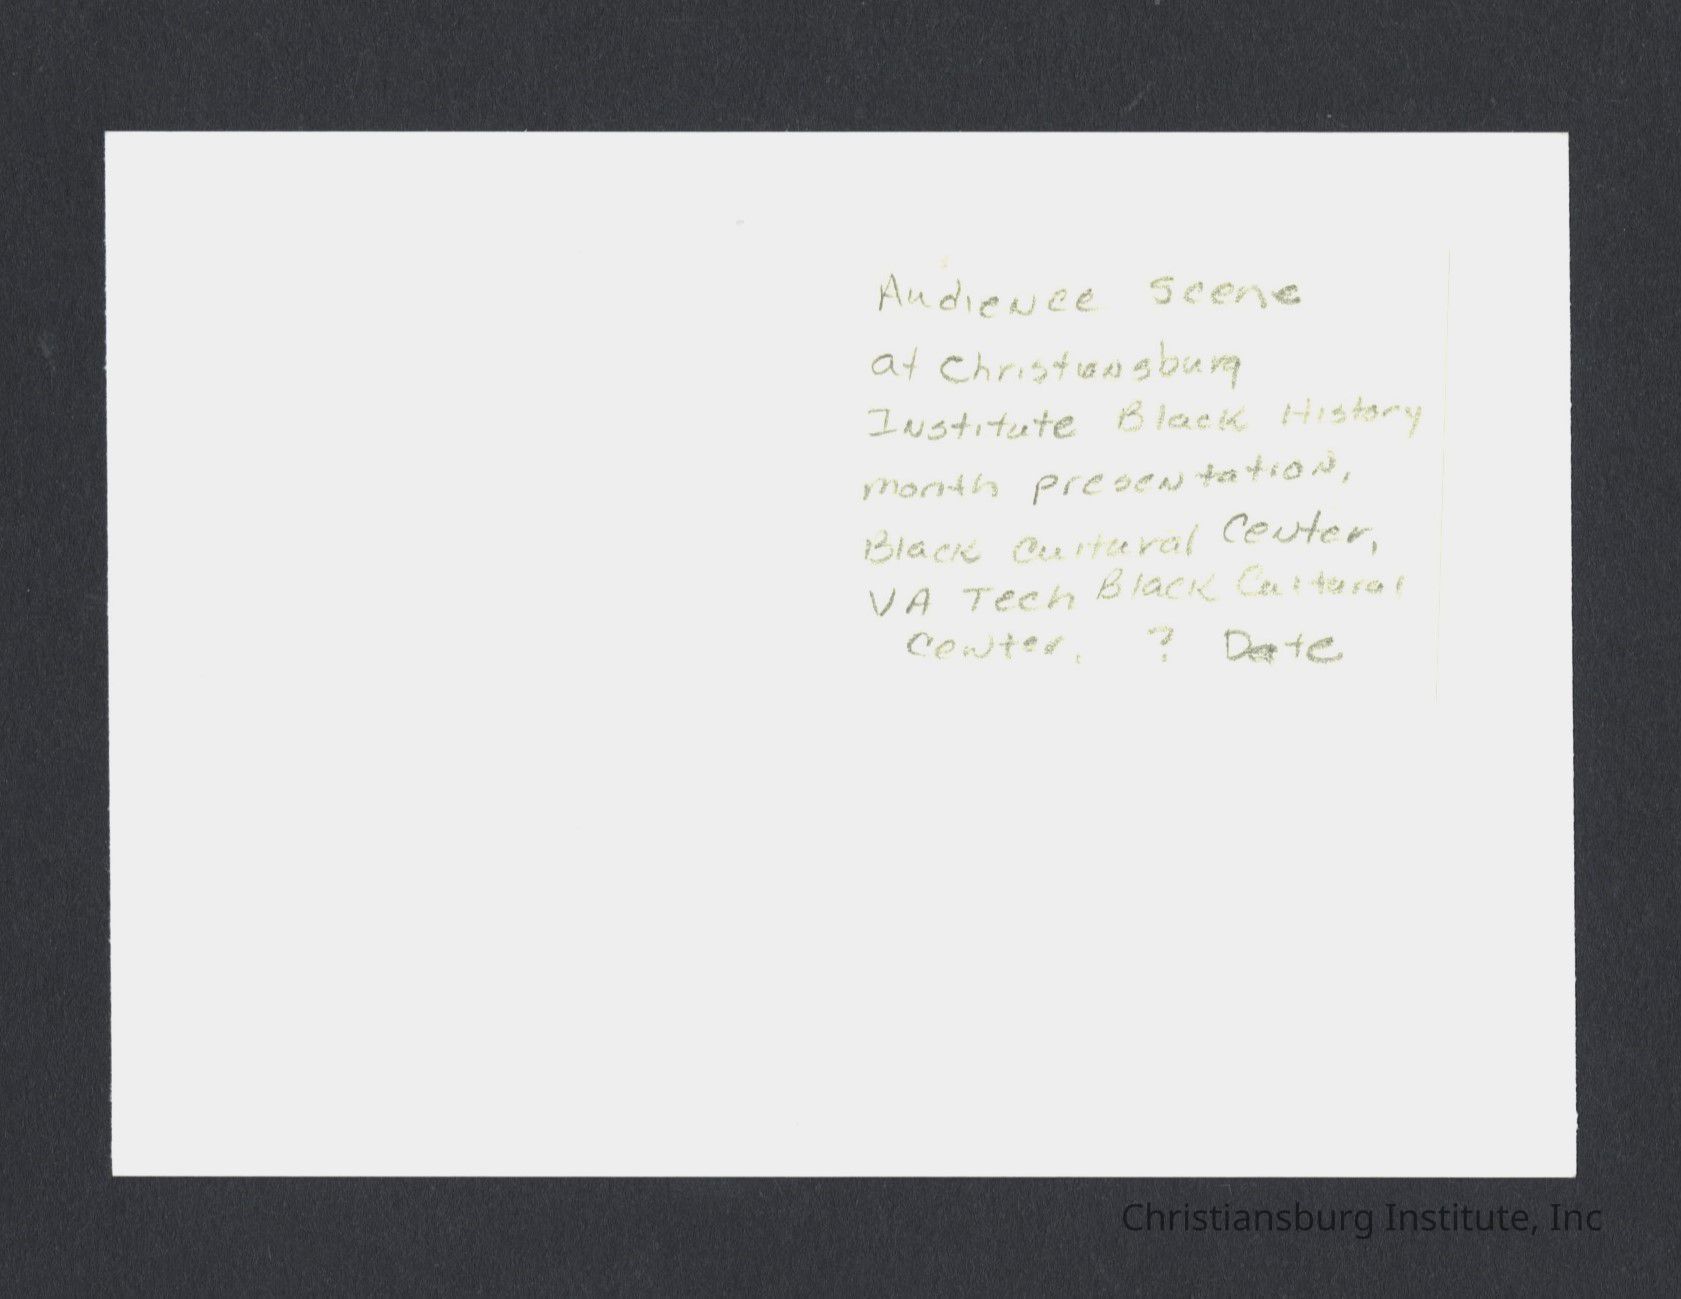 Audience Scene
at Christiansburg
Institute Black History
month presentation,
Black Cultural Center,
VA Tech Black Cultural
Center. ? Date
Christiansburg Institute, Inc